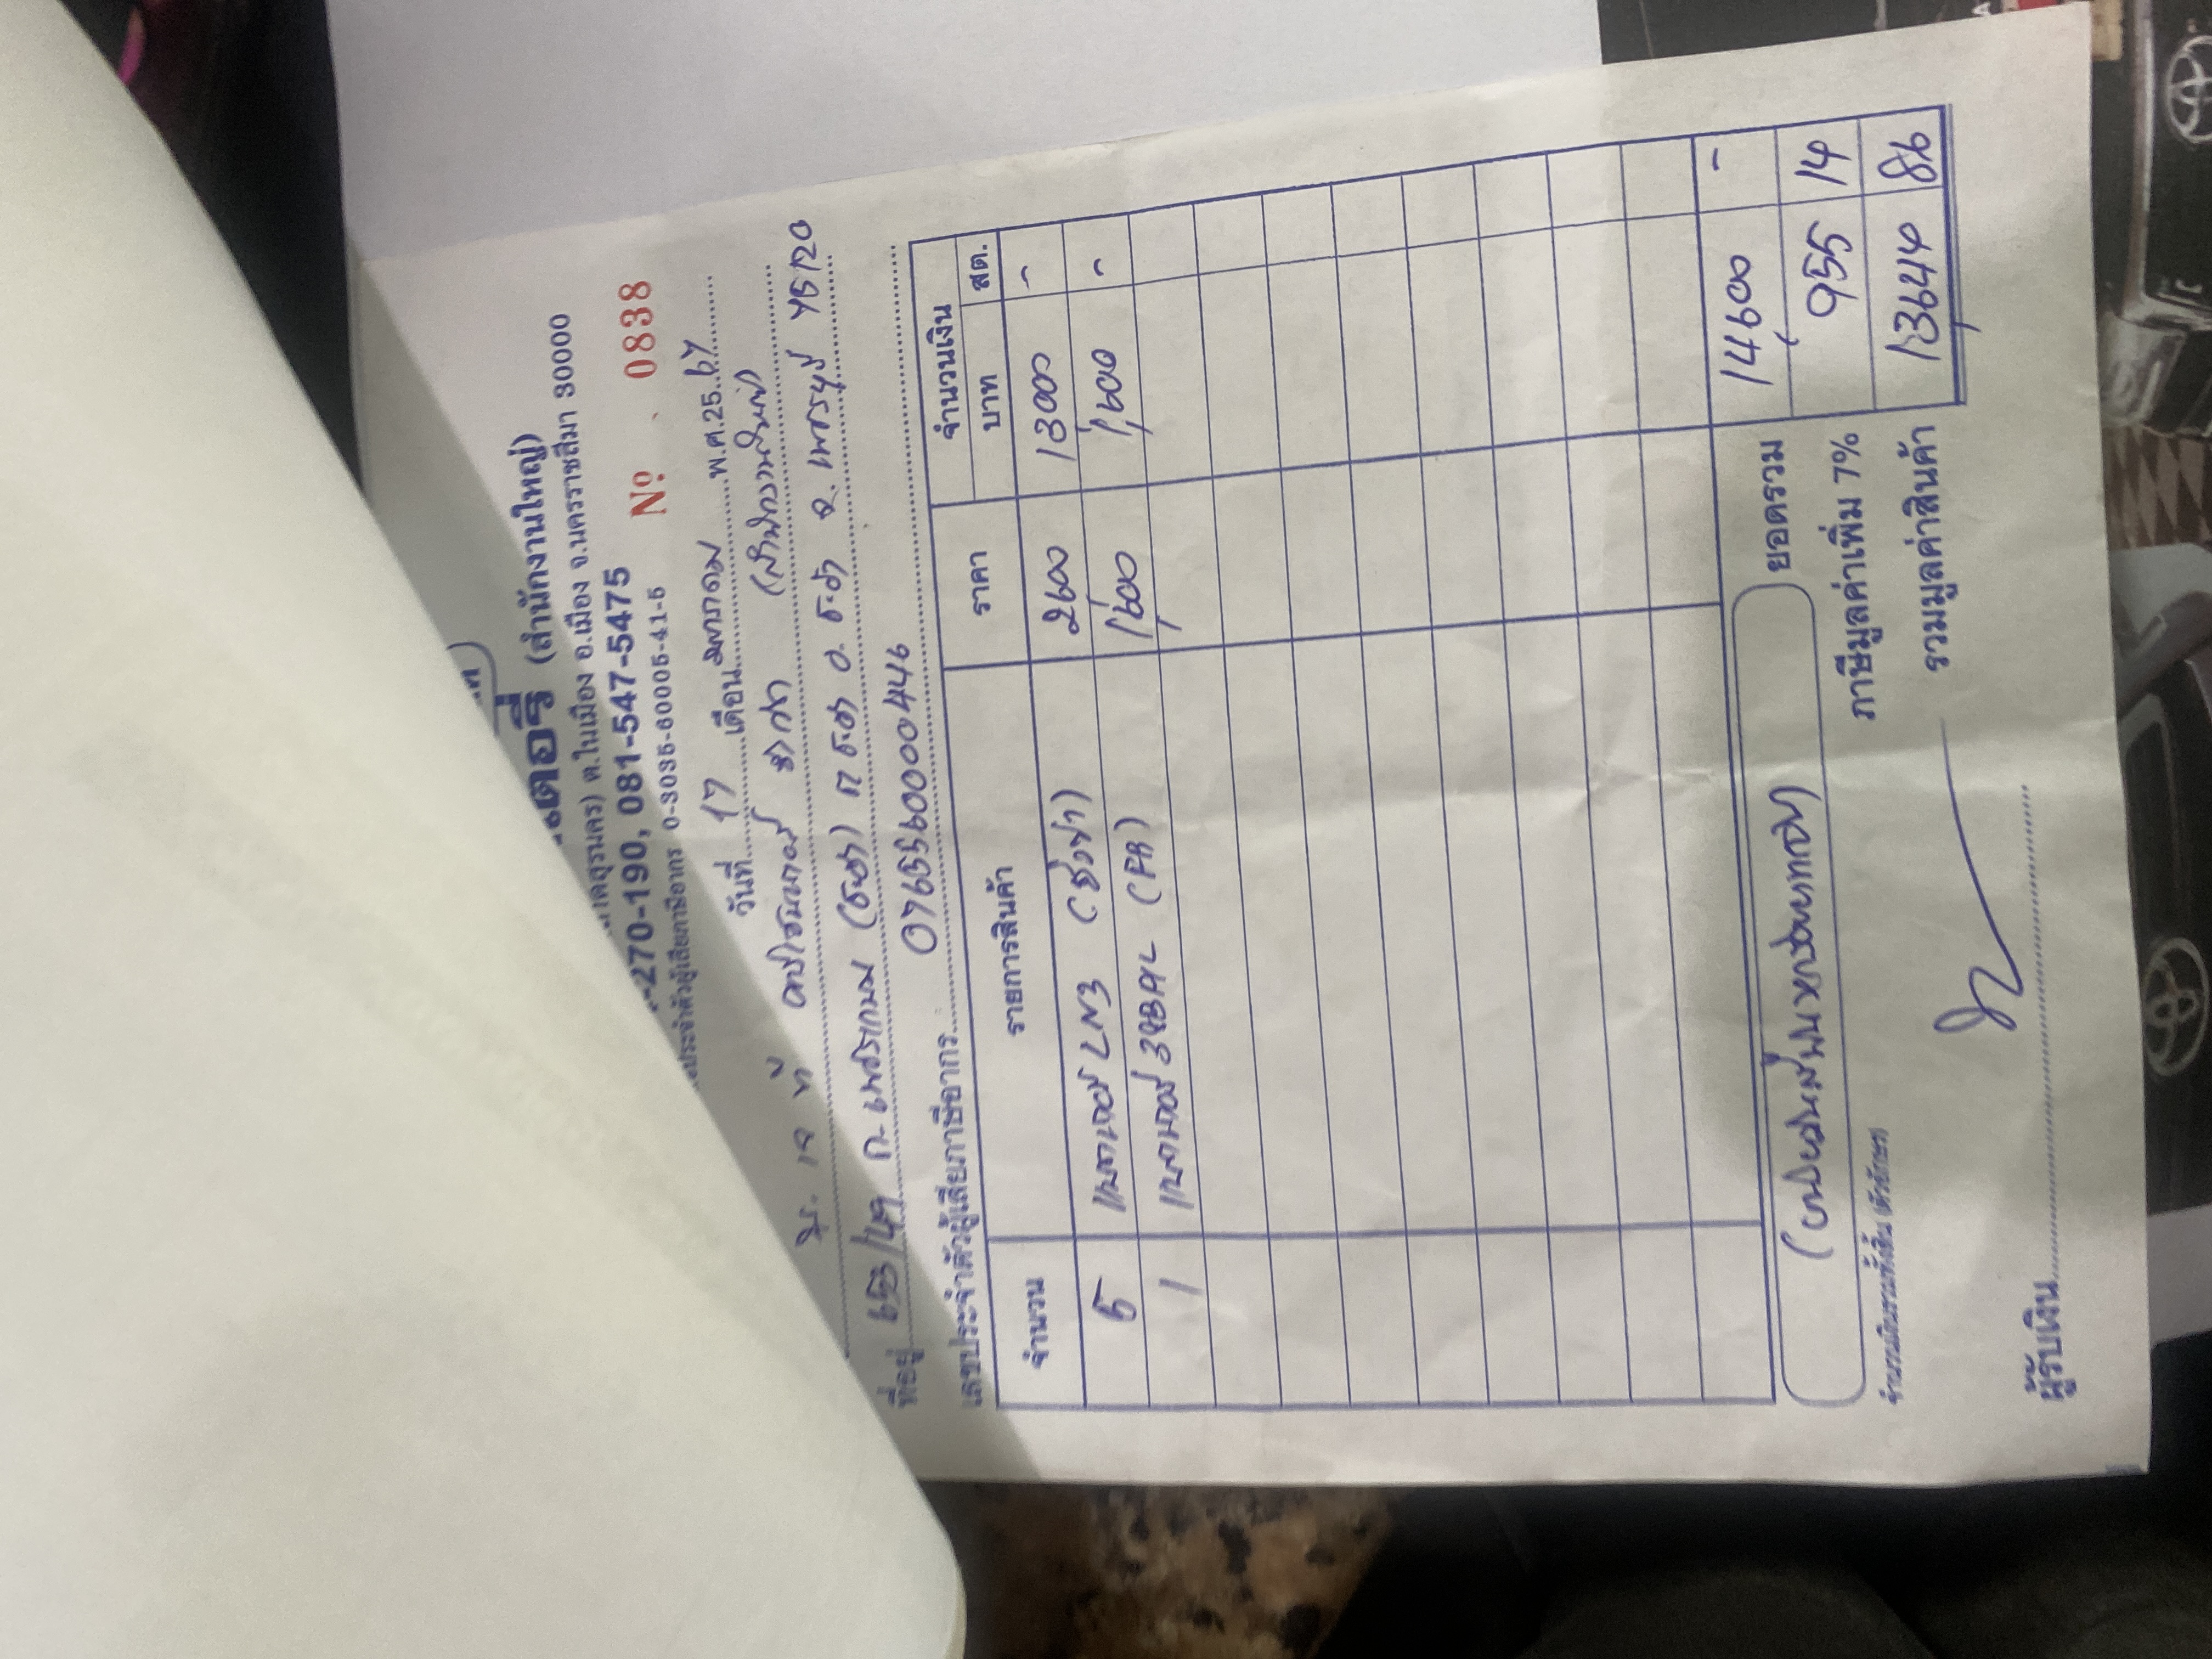 เตอรี่ (สำนักงานใหญ่)
ต.ในเมือง อ.เมือง จ.นครราชสีมา 30000
-270-190, 081-547-5475
ประจำตัวผู้เสียภาษีอากร 0-3035-60005-41-5
Nº 0838
วันที่ 17 เดือน มกราคม พ.ศ.25 67
จำกัด (สำนักงานใหญ่)
ที่อยู่ ถ. เพชรเกษม (ชะอำ) ต. ชะอำ อ. ชะอำ จ. เพชรบุรี 76120
เลขประจำตัวผู้เสียภาษีอากร 0765560000446
จำนวน รายการสินค้า ราคา จำนวนเงิน
บาท สต.
5 แบตเตอรี่ LN3 2600 13000 -
1 แบตเตอรี่ (FB) 1,600 1,600 -
ยอดรวม 14,600 -
ภาษีมูลค่าเพิ่ม 7% 955 14
รวมมูลค่าสินค้า 13,644 86
(หนึ่งหมื่นสี่พันหกร้อยบาทถ้วน)
จำนวนเงินรวมทั้งสิ้น (ตัวอักษร)
ผู้รับเงิน